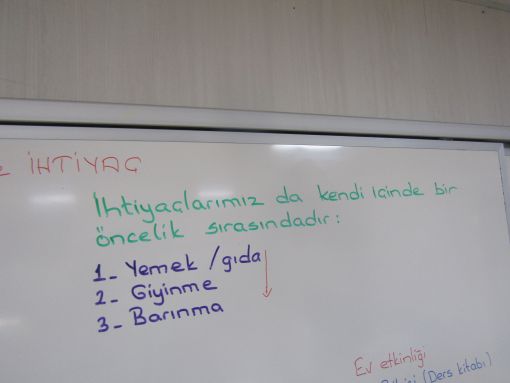 İHTİYAÇ
İhtiyaçlarımız da kendi içinde bir
öncelik sırasındadır:
1- Yemek / gıda
2- Giyinme
3- Barınma
Ev etkinliği
(Ders kitabı)